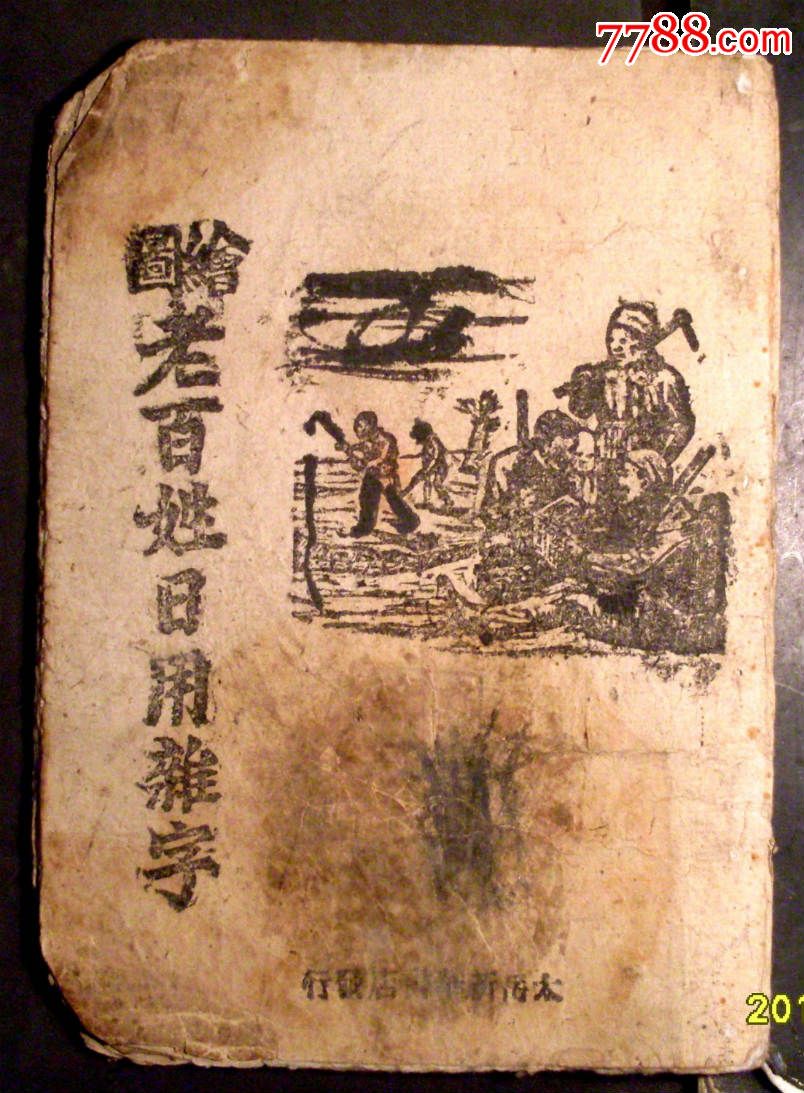 7788.com
繪圖
老百姓日用雜字
太岳新華書店發行
201